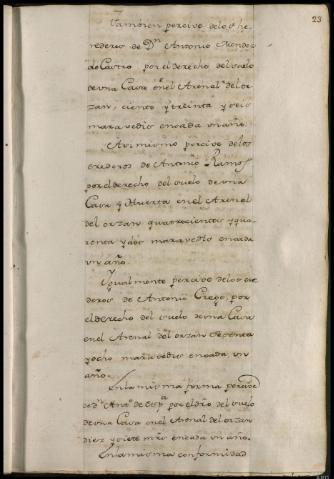 23
Tambien percive delos he
rederos de Dn. Antonio Mendez
de Castro por el derecho del suelo
de una Casa en el Arenal del or
zan, ciento y treinta y seis
maravedis encada un año.
Asimismo percive delos
erederos de Antonio Ramos
por el derecho del suelo de una
Casa y Huerta en el Arenal
del orzan quatrocientos y qua
renta y dos maravedis encada
un año.
Ygualmente percive delos ere
deros de Antonio Crego, por
el derecho del suelo de una Casa
en el Arenal del orzan sesenta
y ocho maravedis encada un
año.
Enla misma forma percive
de por el dro. del suelo
de una Casa en el Arenal del orzan
diez y siete mrs. encada un año.
Enla misma conformidad